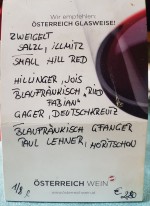 Wir empfehlen:
ÖSTERREICH GLASWEISE!
ZWEIGELT
SALZL, ILLMITZ
SMALL HILL RED
HILLINGER, JOIS
BLAUFRÄNKISCH "RIED
FABIAN"
GAGER, DEUTSCHKREUTZ
BLAUFRÄNKISCH GFANGER
PAUL LEHNER, HORITSCHON
1/8 l
ÖSTERREICH WEIN
€ 2,80